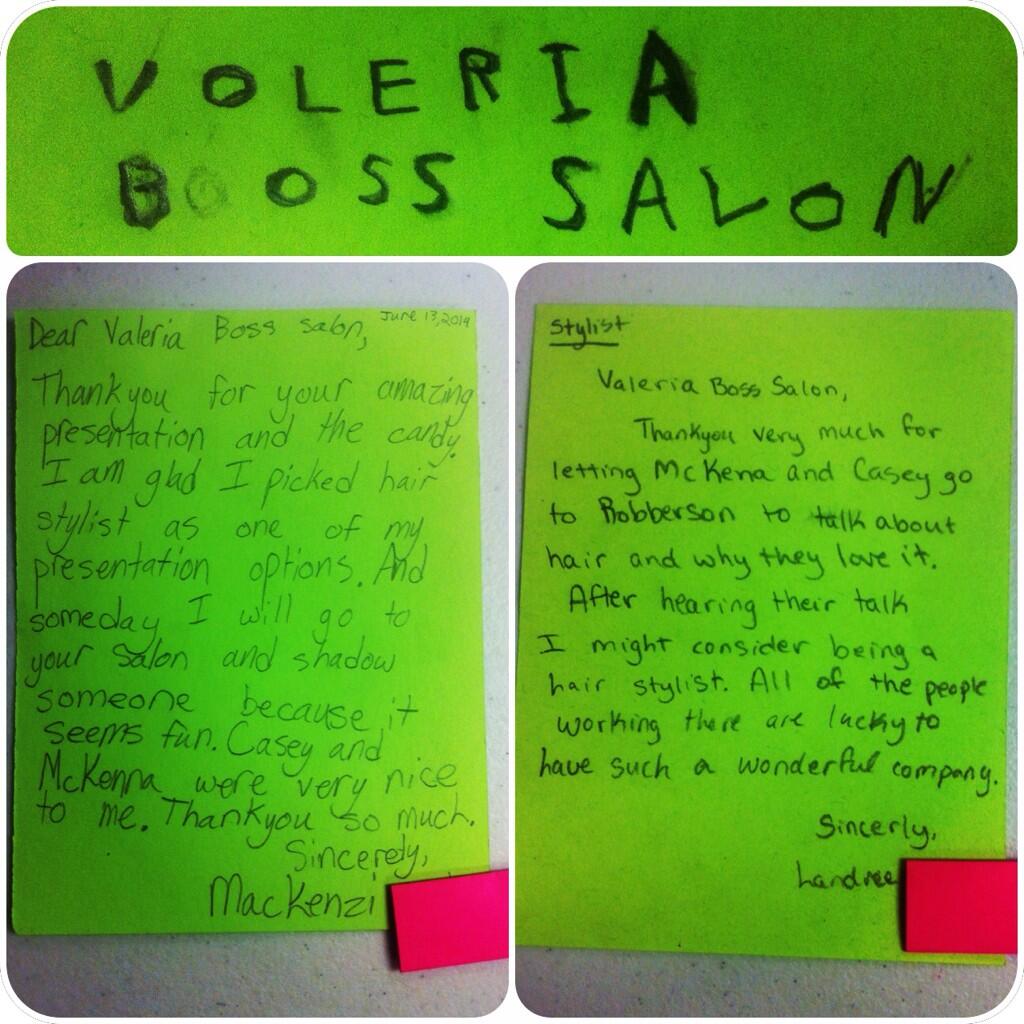 VOLERIA
BOSS SALON
June 13, 2014
Dear Valeria Boss salon,
Thankyou for your amazing
presentation and the candy.
I am glad I picked hair
stylist as one of my
presentation options. And
someday I will go to
your salon and shadow
someone because it
seems fun. Casey and
McKenna were very nice
to me. Thankyou so much.
Sincerely,
MacKenzi
Stylist
Valeria Boss Salon,
Thankyou very much for
letting McKena and Casey go
to Robberson to talk about
hair and why they love it.
After hearing their talk
I might consider being a
hair stylist. All of the people
working there are lucky to
have such a wonderful company.
Sincerly,
Landree